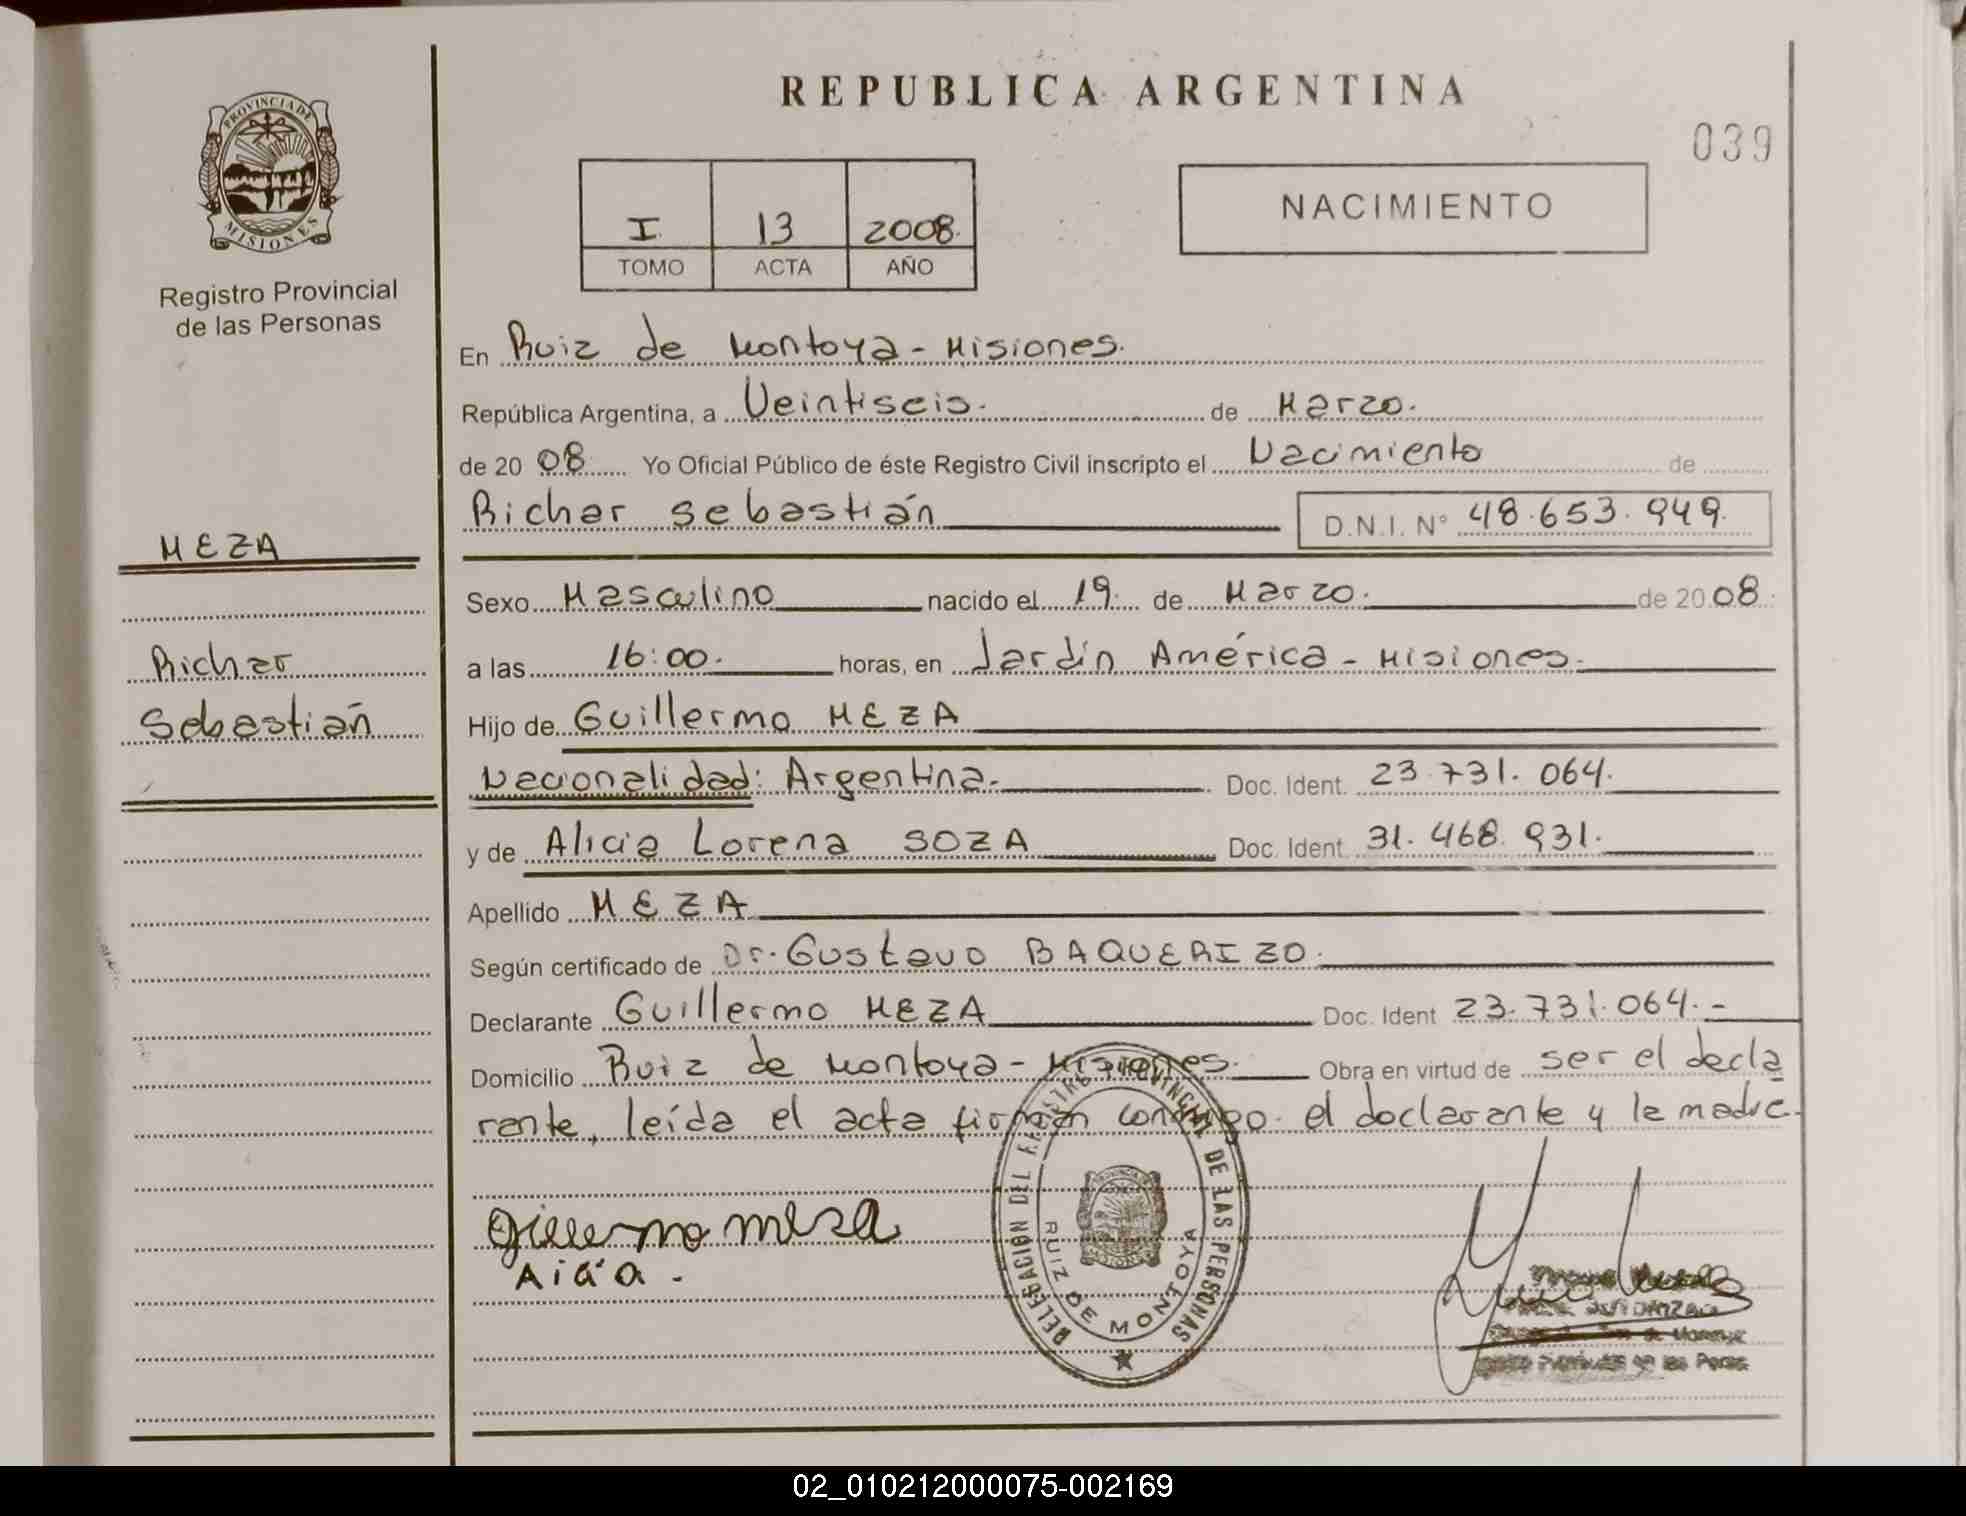 REPUBLICA ARGENTINA
039
PROVINCIA DE
MISIONES
Registro Provincial
de las Personas
I 13 2008
TOMO ACTA AÑO
NACIMIENTO
En Ruiz de Montoya - Misiones.
República Argentina, a Veintiseis. de Marzo.
de 20 08 Yo Oficial Público de éste Registro Civil inscripto el Nacimiento de
Richar Sebastián D.N.I. N° 48.653.949.
MEZA
Richar
Sebastián
Sexo Masculino nacido el 19. de Marzo. de 20 08.
a las 16:00. horas, en Jardín América - Misiones.
Hijo de Guillermo MEZA
Nacionalidad: Argentina. Doc. Ident. 23.731.064.
y de Alicia Lorena SOZA Doc. Ident. 31.468.931.
Apellido MEZA
Según certificado de Dr. Gustavo BAQUERIZO.
Declarante Guillermo MEZA Doc. Ident 23.731.064.-
Domicilio Ruiz de Montoya - Misiones. Obra en virtud de ser el decla
rante, leída el acta firman conmigo el declarante y la madre.
DELEGACIÓN DEL REGISTRO PROVINCIAL DE LAS PERSONAS
RUIZ DE MONTOYA
gillermo mesa
de las Perso
02_010212000075-002169